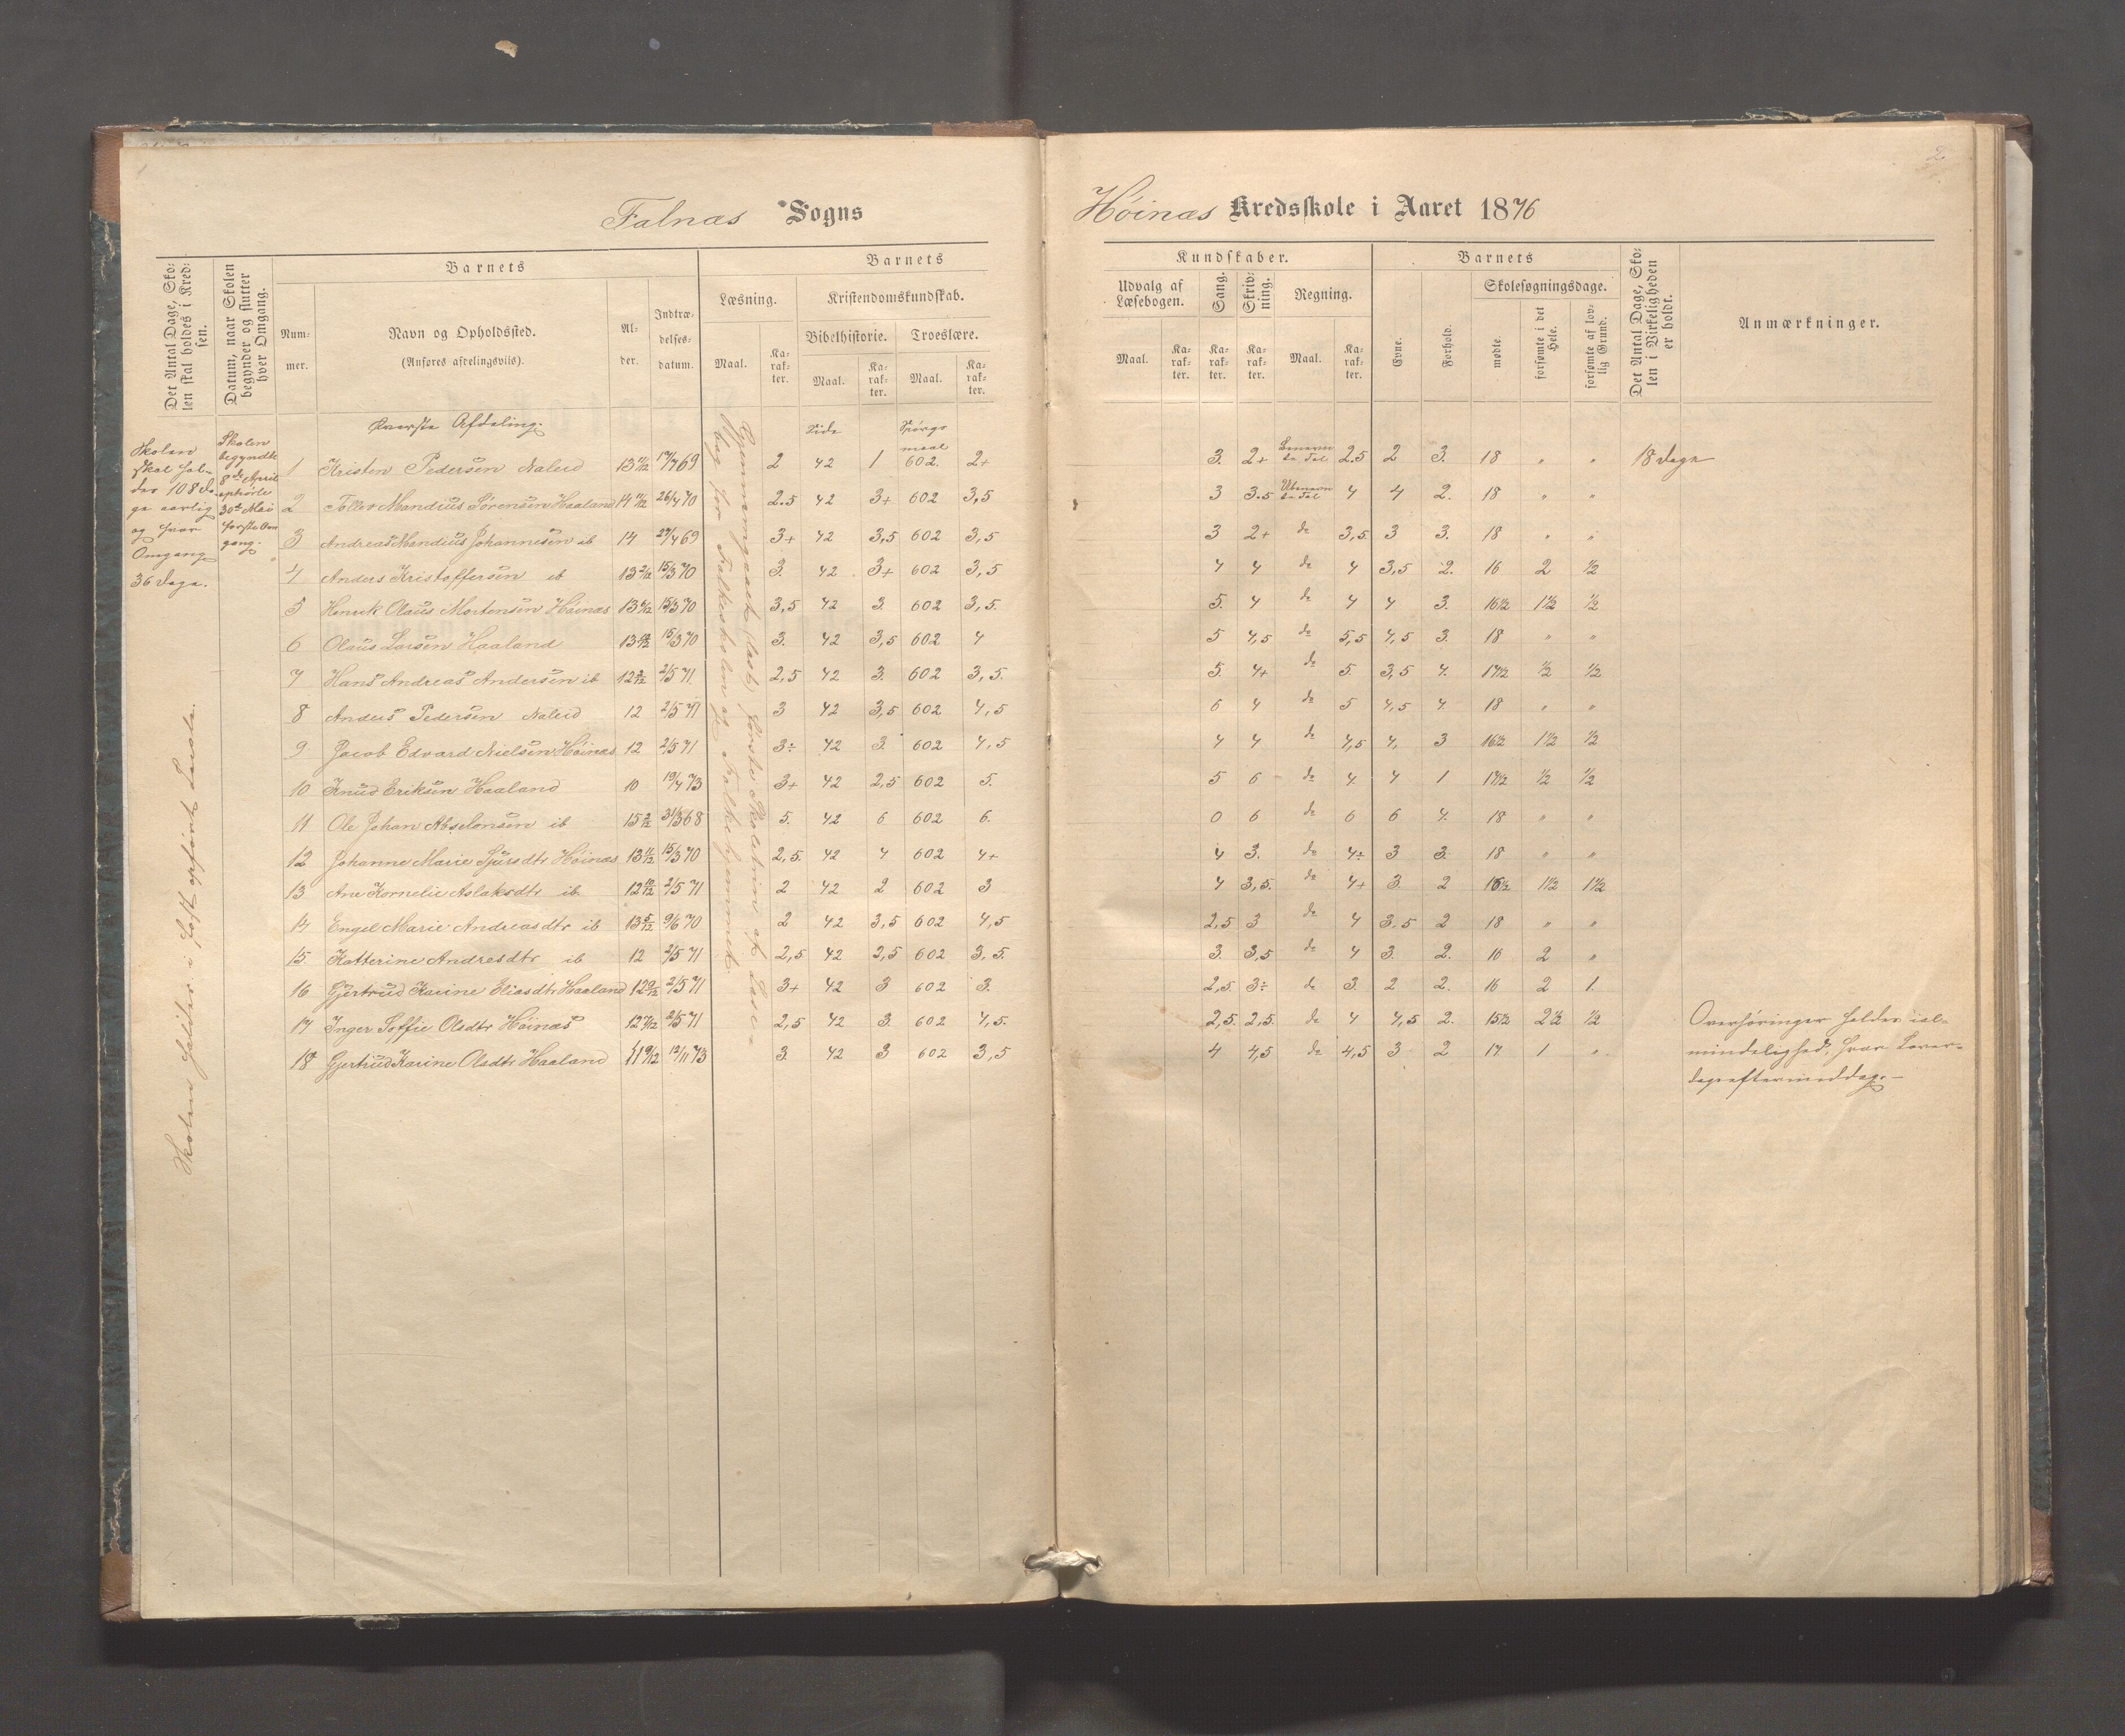 2
Falnæs Sogns
Høinæs Kredsskole i Aaret 1876
Det Antal Dage, Sko-
len skal holdes i Kred-
sen.
Datum, naar Skolen
begynder og slutter
hver Omgang.
Barnets
Num-
mer.
Navn og Opholdssted.
(Anføres afdelingsviis).
Al-
der.
Indtræ-
delses-
datum.
Barnets
Læsning.
Maal.
Ka-
rak-
ter.
Kristendomskundskab.
Bibelhistorie.
Maal.
Ka-
rak-
ter.
Troeslære.
Maal.
Ka-
rak-
ter.
Kundskaber.
Udvalg af
Læsebogen.
Maal.
Ka-
rak-
ter.
Sang.
Ka-
rak-
ter.
Skriv-
ning.
Ka-
rak-
ter.
Regning.
Maal.
Ka-
rak-
ter.
Barnets
Evne.
Forhold.
Skolesøgningsdage.
mødte.
forsømte i det
Hele.
forsømte af lov-
lig Grund.
Det Antal Dage, Sko-
len i Virkeligheden
er holdt.
Anmærkninger.
Skolen
skal hol-
des 108 da-
ge aarlig
og hver
Omgang
36 Dage.
Skolen
begyndte
8de April
ophørte
30te Mai
første Om
gang.
Øverste Afdeling.
Side
Spørgs
maal
1 Kristen Pedersen Naleid 13 11/12 17/7 69 2 42 1 602. 2+ 3. 2+ 2.5 2 3. 18 " " 18 Dage
2 Toller Mandius Sørensen Haaland 14 26/4 70 2.5 42 3+ 602 3,5 3 3.5 4 4 2. 18 " "
3 Andreas Mandius Johannesen ib 14 27/4 69 3+ 42 3,5 602 3,5 3 2+ do 3,5 3 3. 18 " "
4 Anders Kristoffersen ib 13 2/12 15/3 70 3. 42 3+ 602 3,5 4 4 do 4 3,5 2. 16 2 1/2
5 Henrik Olaus Mortensen Høinæs 13 15/3 70 3,5 42 3. 602 3,5. 5. 4 do 4 4 3. 16 1/2 1 1/2 1/2
6 Olaus Larsen Haaland 13 15/3 70 3. 42 3,5 602 4 5 4,5 do 5,5 4,5 3. 18 " "
7 Hans Andreas Andersen ib 12 2/5 71 2,5 42 3. 602 3,5. 5. 4+ do 5. 3,5 4. 17 1/2 1/2 1/2
8 Anders Pedersen Naleid 12 2/5 71 3 42 3,5 602 4,5 6 4 do 5 4,5 4. 18 " "
9 Jacob Edvard Nielsen Høinæs 12 2/5 71 3÷ 42 3. 602 4,5 4 4 do 4,5 4, 3 16 1/2 1 1/2 1/2
10 Knud Eriksen Haaland 10 19/4 73 3+ 42 2,5 602 5. 5 6 do 4. 4 1 17 1/2 1/2 1/2
11 Ole Johan Abselonsen ib 15 31/3 68 5. 42 6 602 6. 0 6 do 6 6 4. 18 " "
12 Johanne Marie Sjursdtr Høinæs 13 15/3 70 2,5. 42 4 602 4+ 4 3. do 4÷ 3 3. 18 " "
13 Ane Kornelie Aslaksdtr ib 12 10/12 2/5 71 2 42 2 602 3 4 3,5. do 4+ 3. 2 16 1/2 1 1/2 1 1/2
14 Engel Marie Andreasdtr ib 13 5/12 9/6 70 2 42 3,5 602 4,5 2,5 3 do 4 3.5 2 18 " "
15. Katterine Andresdtr ib 12 2/5 71 2,5 42 2,5 602 3,5. 3. 3,5 do 4 3. 2. 16 2 "
16 Gjertrud Karine Eliasdtr Haaland 12 9/12 2/5 71 3+ 42 3 602 3. 2,5. 3÷ do 3. 2 2. 16 2 1.
17 Inger Soffie Olsdtr Høinæs 12 7/12 2/5 71 2,5 42 3. 602 4,5. 2,5. 2,5. do 4 4,5 2. 15 1/2 2 1/2 1/2
18 Gjertrud Karine Olsdtr Haaland 11 9/12 12/11 73 3. 42 3 602 3,5 4 4,5 do 4,5 3 2 17 1 "
Overhøringer holdes ial-
mindelighed, hver Løver-
dagseftermiddag.
Skolen holdes i fast opført Locale.